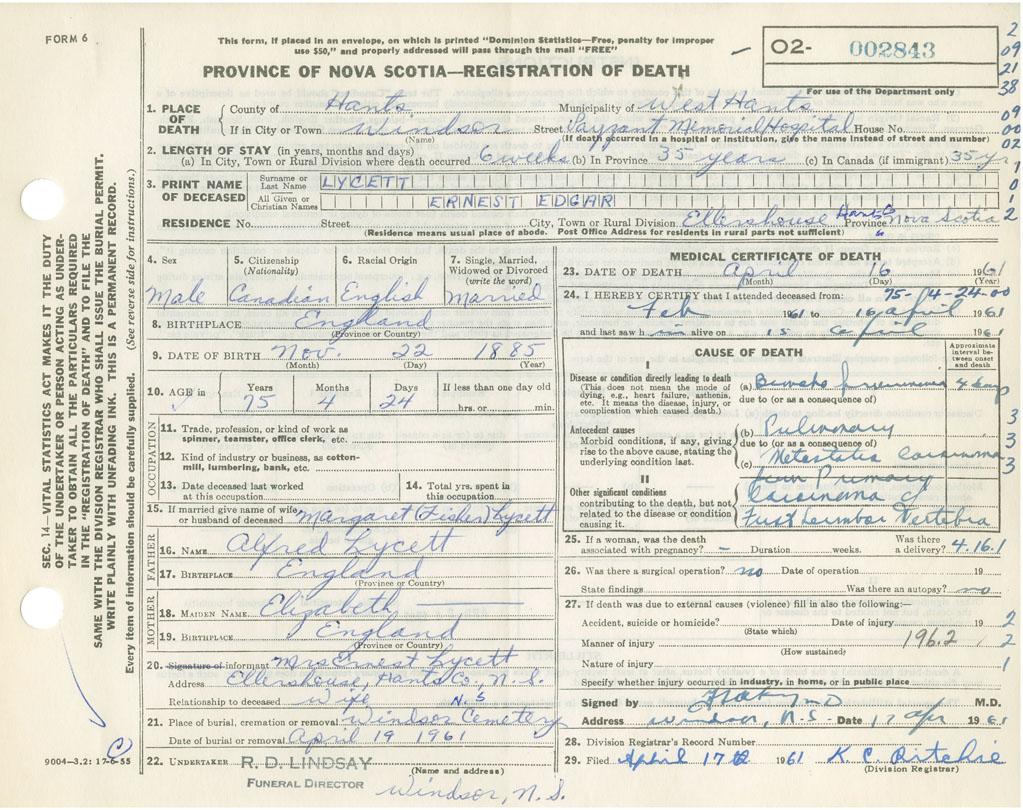 FORM 6
This form, if placed in an envelope, on which is printed "Dominion Statistics—Free, penalty for improper
use $50," and properly addressed will pass through the mail "FREE"
PROVINCE OF NOVA SCOTIA—REGISTRATION OF DEATH
02- 002843
For use of the Department only
2
09
21
38
09
00
02
1
0
1
2
1. PLACE OF DEATH
County of Hants Municipality of West Hants
If in City or Town Windsor Street Payzant Memorial Hospital House No.
(Name) (If death occurred in a hospital or institution, give the name instead of street and number)
2. LENGTH OF STAY (in years, months and days)
(a) In City, Town or Rural Division where death occurred 6 weeks (b) In Province 35 years (c) In Canada (if immigrant) 35 yr
3. PRINT NAME OF DECEASED
Surname or Last Name LYCETT
All Given or Christian Names ERNEST EDGAR
RESIDENCE No. Street City, Town or Rural Division Ellershouse Hants Co Province Nova Scotia
(Residence means usual place of abode. Post Office Address for residents in rural parts not sufficient)
4. Sex Male
5. Citizenship (Nationality) Canadian
6. Racial Origin English
7. Single, Married, Widowed or Divorced (write the word) Married
8. BIRTHPLACE England
(Province or Country)
9. DATE OF BIRTH Nov. 22 1885
(Month) (Day) (Year)
10. AGE in Years 75 Months 4 Days 24 If less than one day old hrs. or min.
OCCUPATION
11. Trade, profession, or kind of work as spinner, teamster, office clerk, etc.
12. Kind of industry or business, as cotton-mill, lumbering, bank, etc.
13. Date deceased last worked at this occupation
14. Total yrs. spent in this occupation
15. If married give name of wife or husband of deceased Margaret (Fisher) Lycett
FATHER
16. NAME Alfred Lycett
17. BIRTHPLACE England
(Province or Country)
MOTHER
18. MAIDEN NAME Elizabeth
19. BIRTHPLACE England
(Province or Country)
20. Signature of informant Mrs Ernest Lycett
Address Ellershouse, Hants Co., N.S.
Relationship to deceased Wife N.S
21. Place of burial, cremation or removal Windsor Cemetery
Date of burial or removal April 19 1961
22. UNDERTAKER R. D. LINDSAY
(Name and address)
FUNERAL DIRECTOR Windsor, N.S.
MEDICAL CERTIFICATE OF DEATH
23. DATE OF DEATH April 16 1961
(Month) (Day) (Year)
24. I HEREBY CERTIFY that I attended deceased from: 75-4-24-00
Feb 1961 to 16 april 1961
and last saw him alive on 15 april 1961
CAUSE OF DEATH
Approximate interval between onset and death
I
Disease or condition directly leading to death
(This does not mean the mode of dying, e.g., heart failure, asthenia, etc. It means the disease, injury, or complication which caused death.)
(a) Broncho pneumonia 4 days
due to (or as a consequence of)
Antecedent causes
Morbid conditions, if any, giving rise to the above cause, stating the underlying condition last.
(b) Pulmonary 3
due to (or as a consequence of) 3
(c) Metastatic carcinoma 3
from Primary
II
Other significant conditions contributing to the death, but not related to the disease or condition causing it.
Carcinoma of
First Lumbar Vertebra
25. If a woman, was the death associated with pregnancy? – Duration weeks. Was there a delivery? 4.16.1
26. Was there a surgical operation? no Date of operation 19
State findings Was there an autopsy? no
27. If death was due to external causes (violence) fill in also the following:—
Accident, suicide or homicide? Date of injury 19 2
(State which)
Manner of injury 1962 2
(How sustained)
Nature of injury 1
Specify whether injury occurred in industry, in home, or in public place
Signed by M.D.
Address Windsor, N.S - Date 17 apr 1961
28. Division Registrar's Record Number
29. Filed April 17th 1961 K C Ritchie
(Division Registrar)
SEC. 14—VITAL STATISTICS ACT MAKES IT THE DUTY
OF THE UNDERTAKER OR PERSON ACTING AS UNDER-
TAKER TO OBTAIN ALL THE PARTICULARS REQUIRED
IN THE "REGISTRATION OF DEATH" AND TO FILE THE
SAME WITH THE DIVISION REGISTRAR WHO SHALL ISSUE THE BURIAL PERMIT.
WRITE PLAINLY WITH UNFADING INK. THIS IS A PERMANENT RECORD.
Every item of information should be carefully supplied. (See reverse side for instructions.)
9004—3.2: 17-6-55